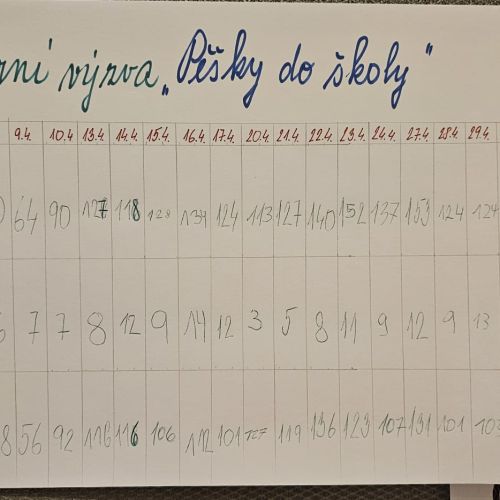 rní výzva „Pěšky do školy"
9.4. 10.4. 13.4. 14.4. 15.4. 16.4. 17.4. 20.4. 21.4. 22.4. 23.4. 24.4. 27.4. 28.4. 29.4.
64 90 127 118 128 134 124 113 127 140 152 137 153 124 124
7 7 8 12 9 14 12 3 5 8 11 9 12 9 13
8 56 92 116 116 106 112 101 107 119 136 123 107 131 101 103